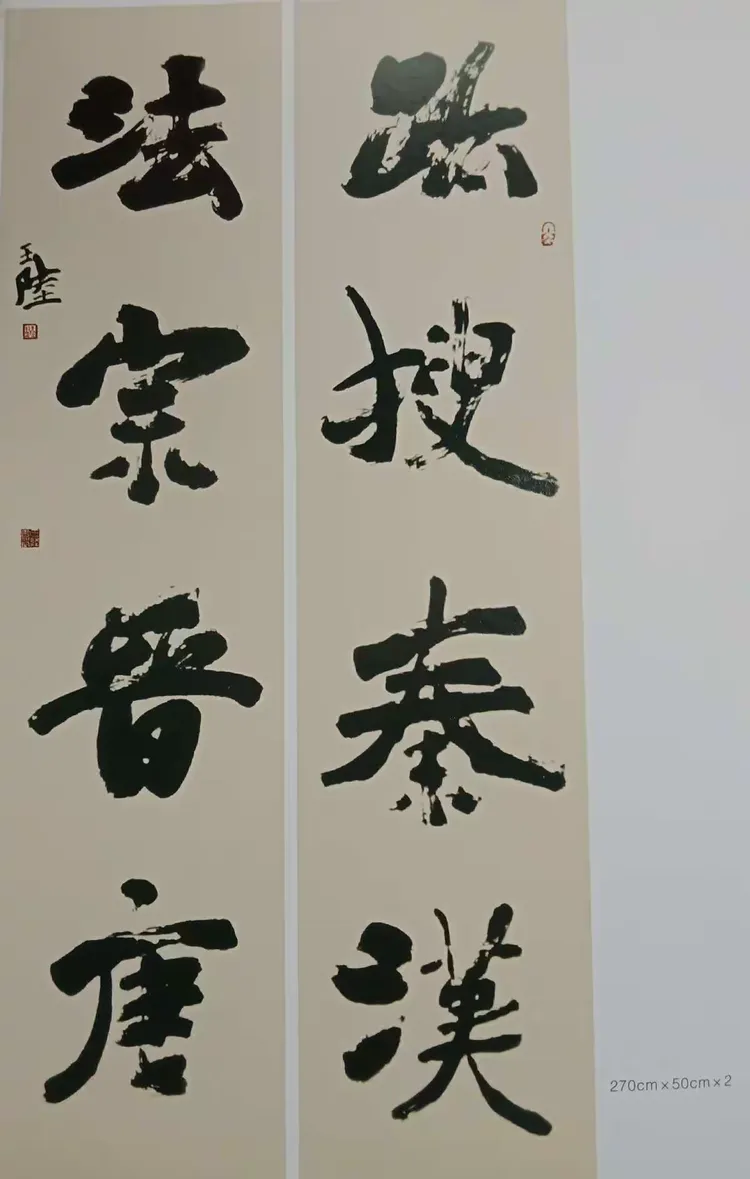 搜秦漢
法宗晋唐
王陸
270cm×50cm×2